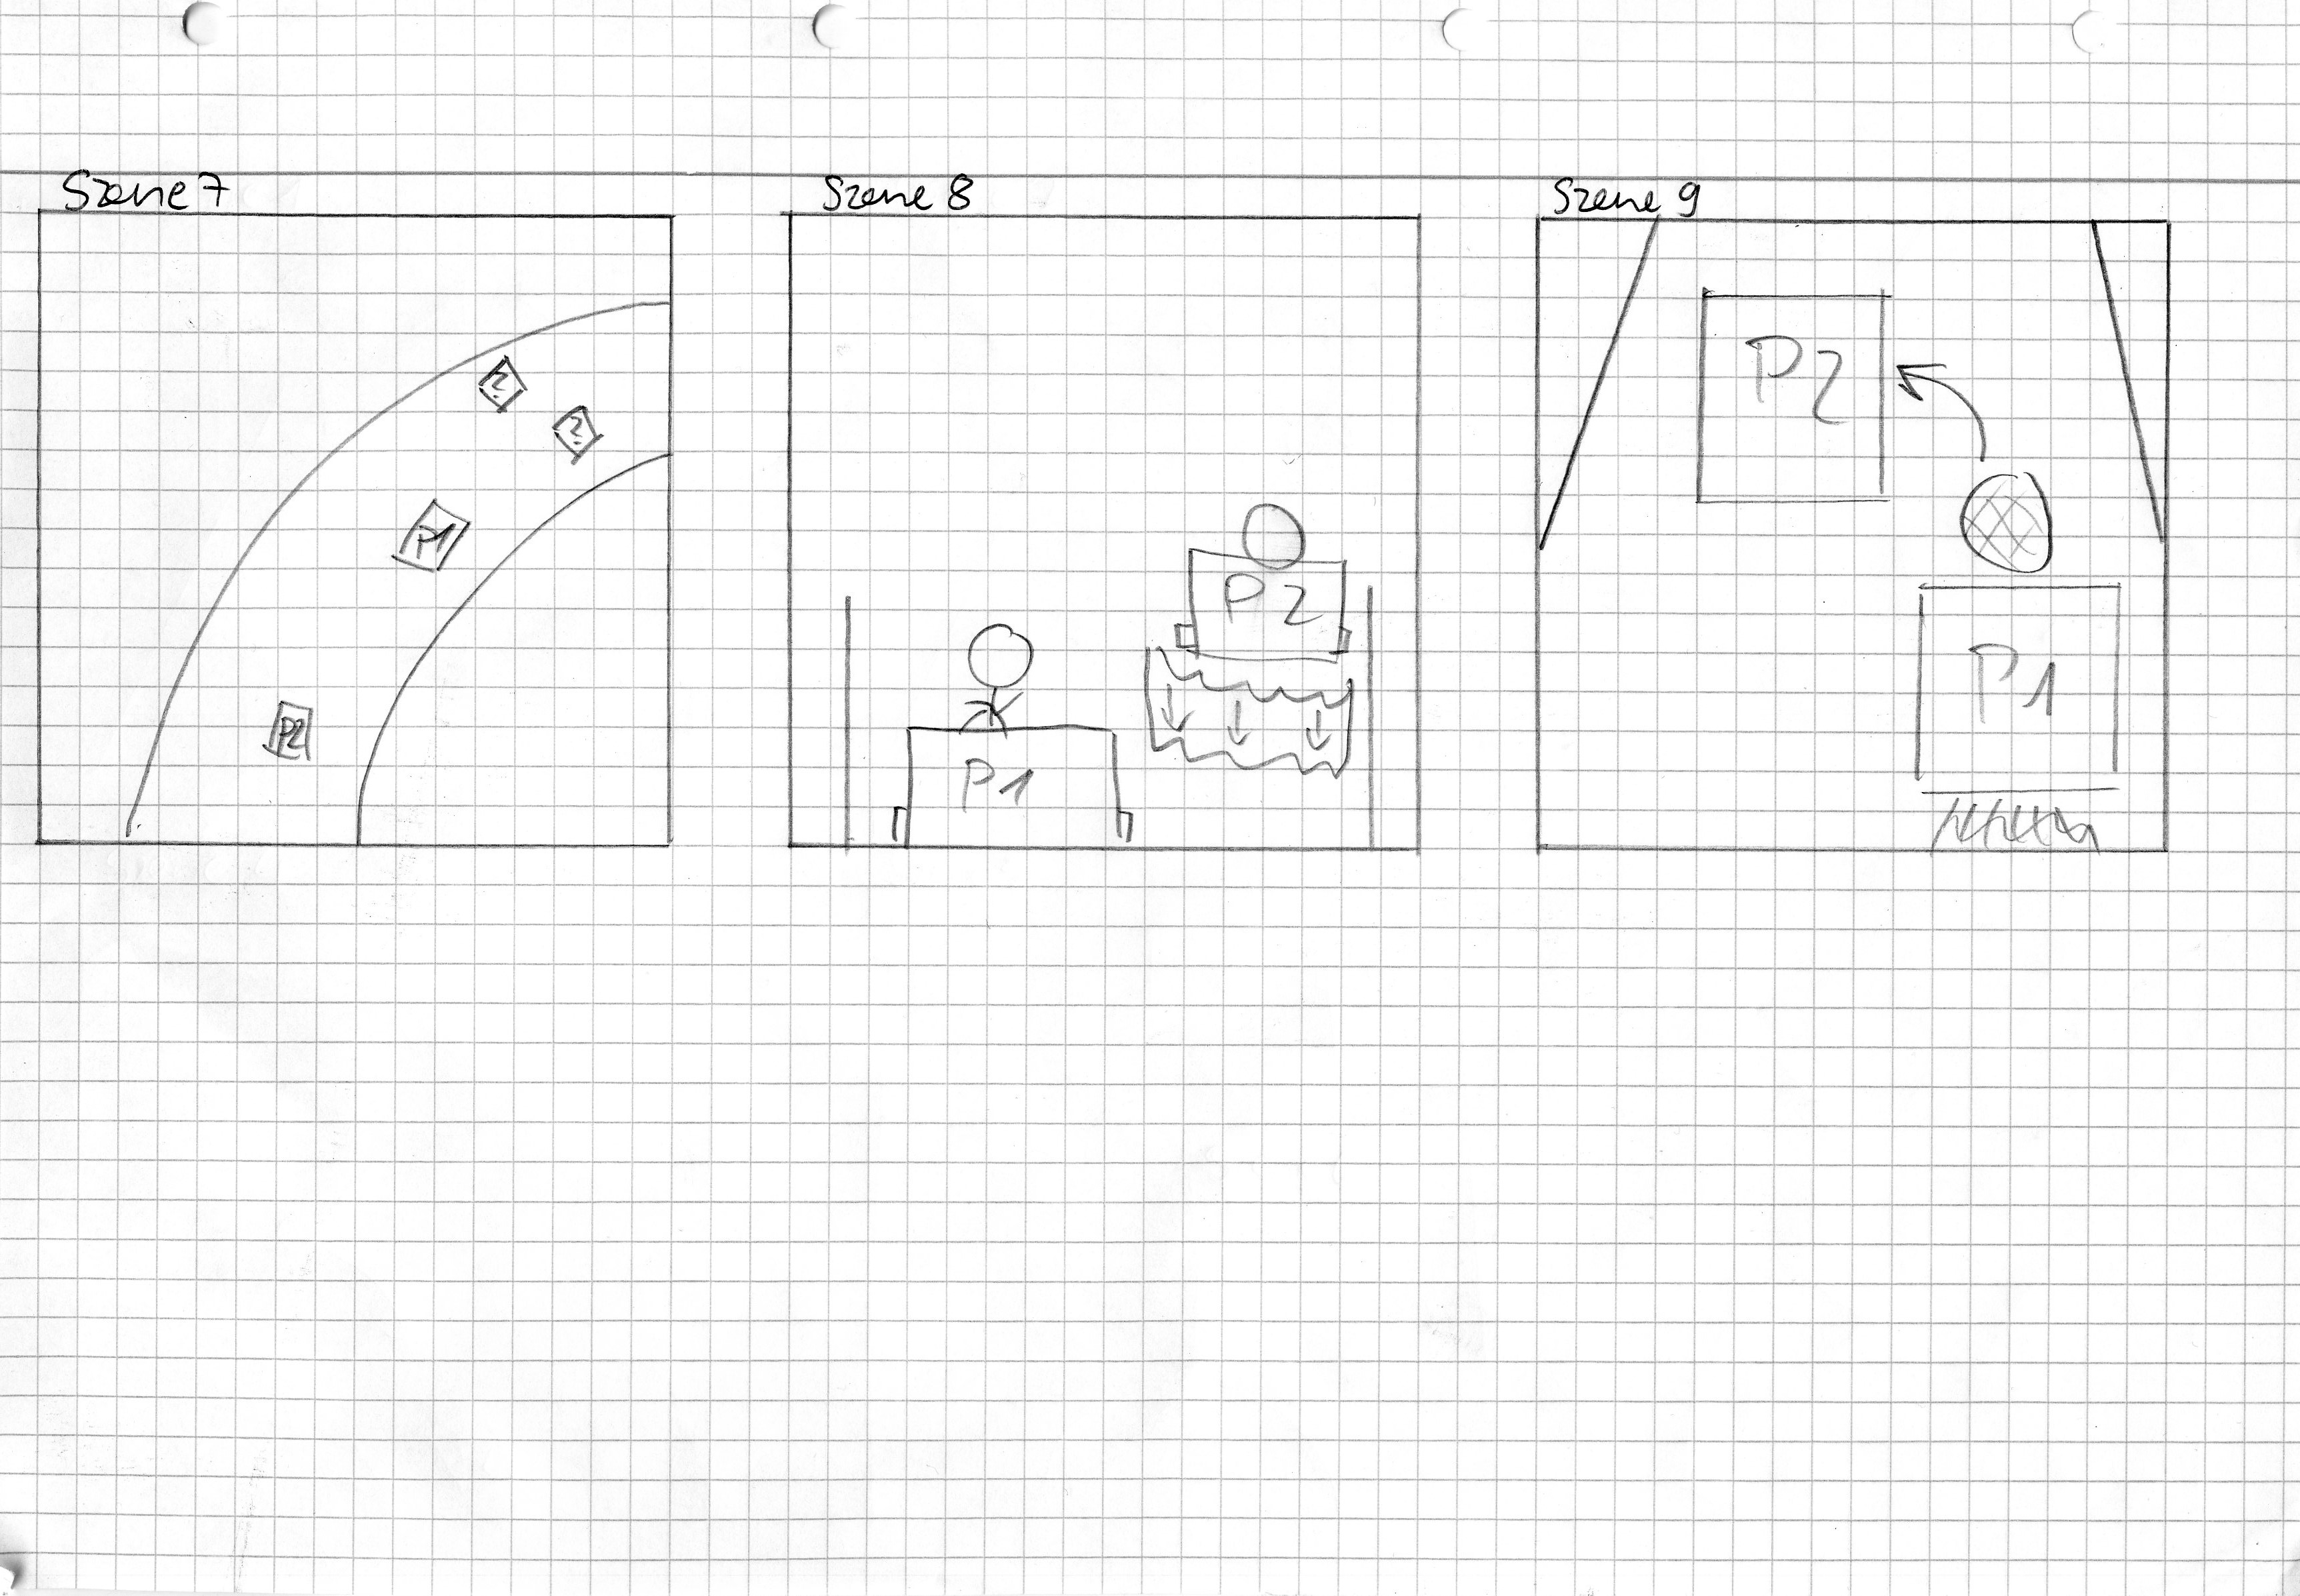 Szene 7
?
?
P1
P2
Szene 8
P2
P1
Szene 9
P2
P1